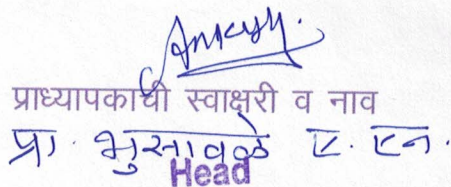 प्राध्यापकाची स्वाक्षरी व नाव
प्रा. भुसावळे ए. एन.
Head